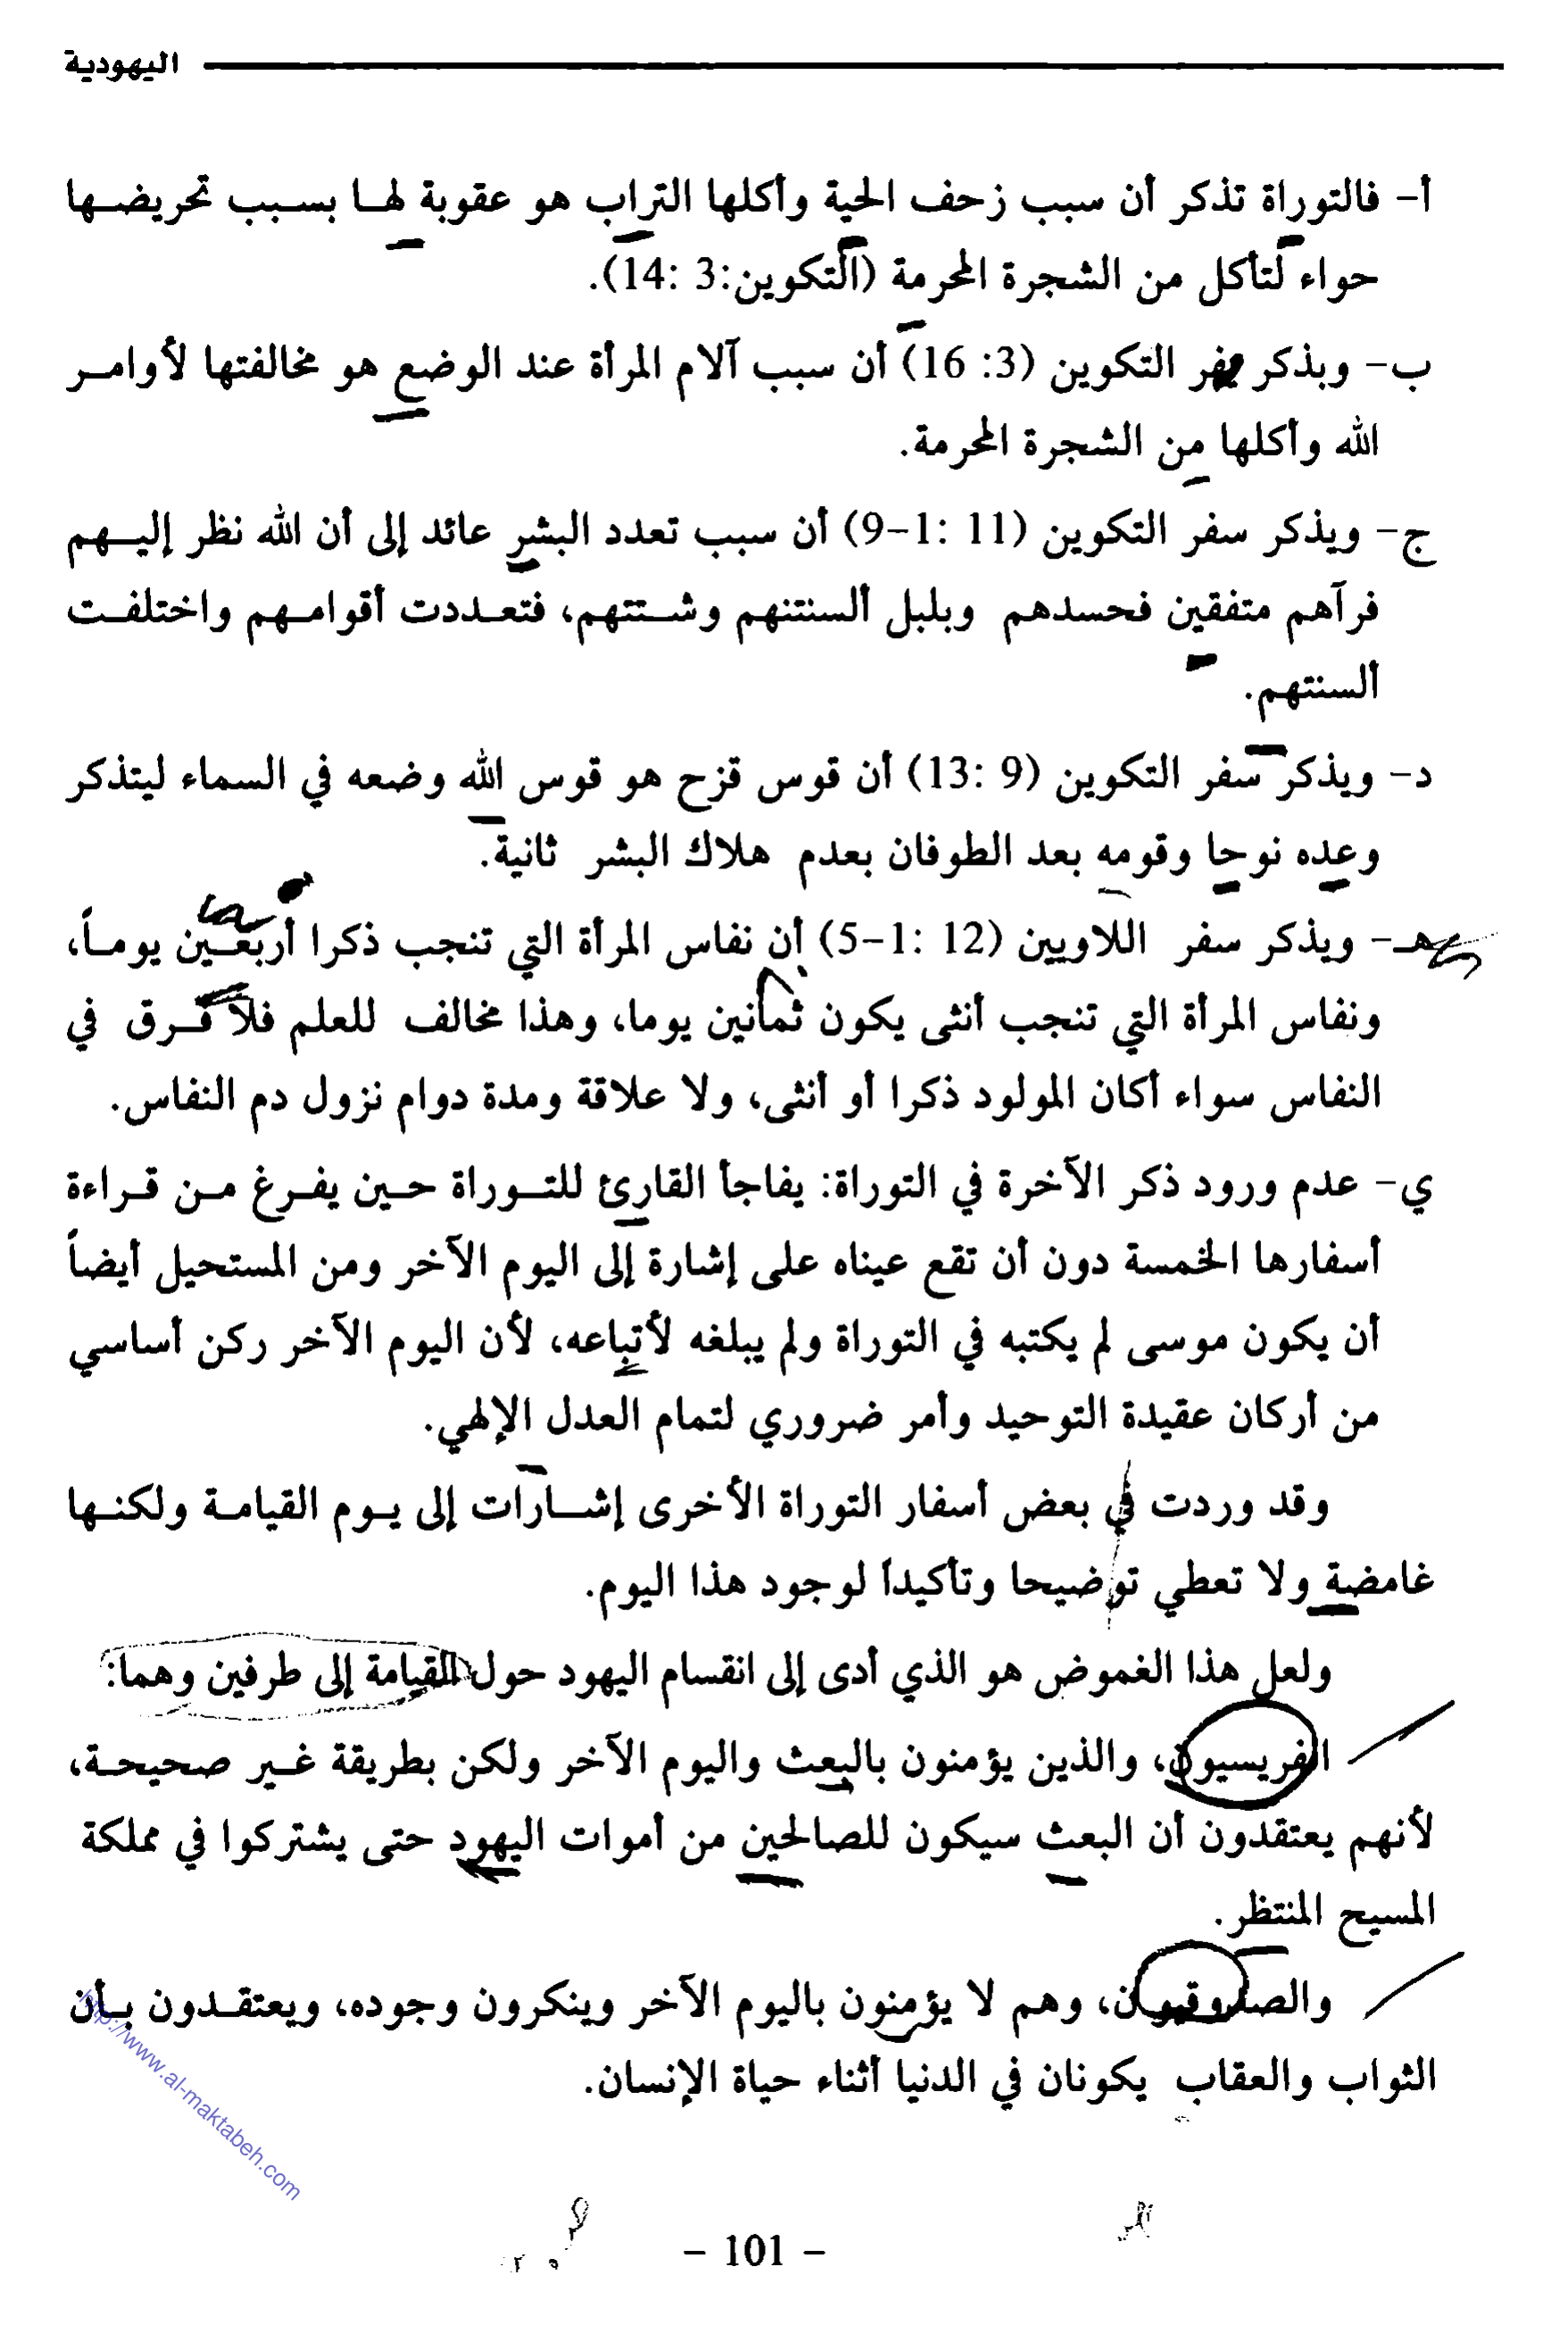 اليهودية
أ- فالتوراة تذكر أن سبب زحف الحية وأكلها التراب هو عقوبة لها بسبب تحريضها
حواء لتأكل من الشجرة المحرمة (التكوين:3 :14).
ب- وبذكر سفر التكوين (3: 16) أن سبب آلام المرأة عند الوضع هو مخالفتها لأوامر
الله وأكلها من الشجرة المحرمة.
ج- ويذكر سفر التكوين (11 :1-9) أن سبب تعدد البشر عائد إلى أن الله نظر إليهم
فرآهم متفقين فحسدهم وبلبل ألسنتنهم وشتتهم، فتعددت أقوامهم واختلفت
ألسنتهم.
د- ويذكر سفر التكوين (9 :13) أن قوس قزح هو قوس الله وضعه في السماء ليتذكر
وعده نوحا وقومه بعد الطوفان بعدم هلاك البشر ثانية.
هـ- ويذكر سفر اللاويين (12 :1-5) أن نفاس المرأة التي تنجب ذكرا أربعين يوماً،
ونفاس المرأة التي تنجب أنثى يكون ثمانين يوما، وهذا مخالف للعلم فلا فرق في
النفاس سواء أكان المولود ذكرا أو أنثى، ولا علاقة ومدة دوام نزول دم النفاس.
ي- عدم ورود ذكر الآخرة في التوراة: يفاجأ القارئ للتوراة حين يفرغ من قراءة
أسفارها الخمسة دون أن تقع عيناه على إشارة إلى اليوم الآخر ومن المستحيل أيضاً
أن يكون موسى لم يكتبه في التوراة ولم يبلغه لأتباعه، لأن اليوم الآخر ركن أساسي
من أركان عقيدة التوحيد وأمر ضروري لتمام العدل الإلهي.
وقد وردت في بعض أسفار التوراة الأخرى إشارات إلى يوم القيامة ولكنها
غامضة ولا تعطي توضيحا وتأكيداً لوجود هذا اليوم.
ولعل هذا الغموض هو الذي أدى إلى انقسام اليهود حول القيامة إلى طرفين وهما:
الفريسيون، والذين يؤمنون بالبعث واليوم الآخر ولكن بطريقة غير صحيحة،
لأنهم يعتقدون أن البعث سيكون للصالحين من أموات اليهود حتى يشتركوا في مملكة
المسيح المنتظر.
والصدوقيون، وهم لا يؤمنون باليوم الآخر وينكرون وجوده، ويعتقدون بأن
الثواب والعقاب يكونان في الدنيا أثناء حياة الإنسان.
http://www.al-maktabeh.com
- 101 -